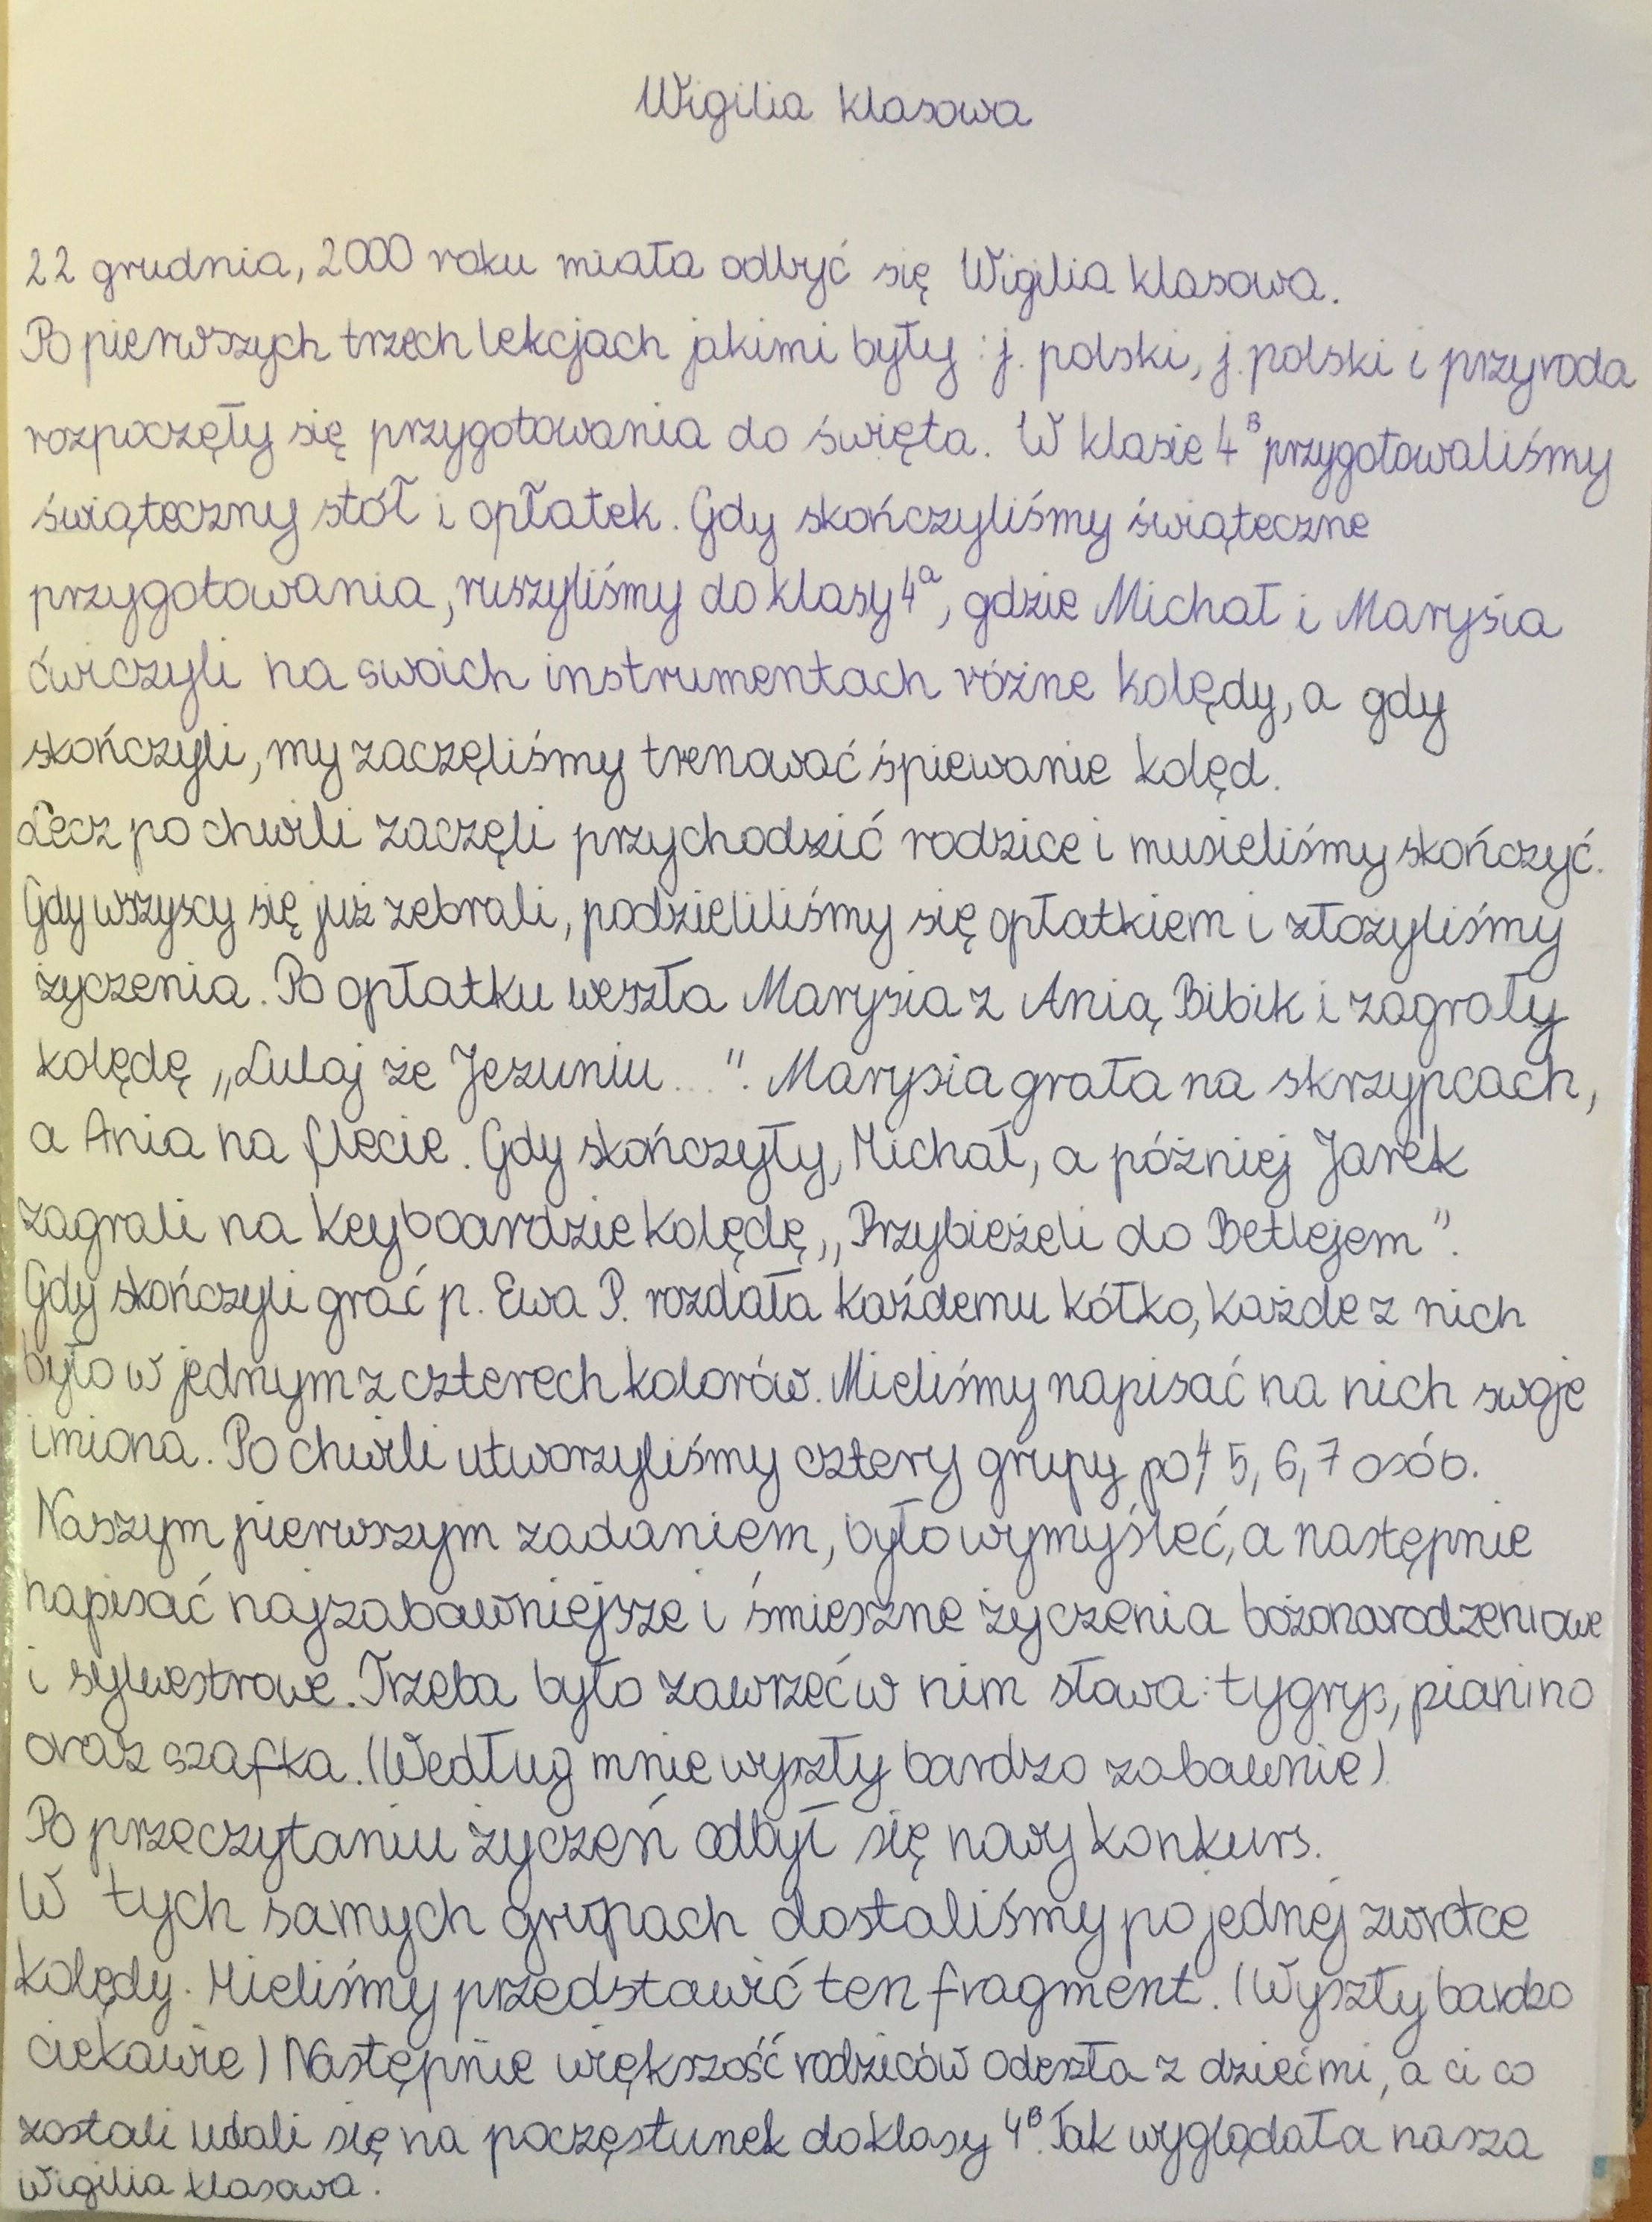 Wigilia klasowa
22 grudnia, 2000 roku miała odbyć się Wigilia klasowa.
Po pierwszych trzech lekcjach jakimi były : j. polski, j. polski i przyroda
rozpoczęły się przygotowania do święta. W klasie 4ᴮ przygotowaliśmy
świąteczny stół i opłatek. Gdy skończyliśmy świąteczne
przygotowania, ruszyliśmy do klasy 4ᵃ, gdzie Michał i Marysia
ćwiczyli na swoich instrumentach różne kolędy, a gdy
skończyli, my zaczęliśmy trenować śpiewanie kolęd.
Lecz po chwili zaczęli przychodzić rodzice i musieliśmy skończyć.
Gdy wszyscy się już zebrali, podzieliliśmy się opłatkiem i złożyliśmy
życzenia. Po opłatku weszła Marysia z Anią Bibik i zagrały
kolędę „Lulaj że Jezuniu...". Marysia grała na skrzypcach,
a Ania na flecie. Gdy skończyły, Michał, a później Jarek
zagrali na keyboardzie kolędę „Przybieżeli do Betlejem".
Gdy skończyli grać p. Ewa P. rozdała każdemu kółko, każde z nich
było w jednym z czterech kolorów. Mieliśmy napisać na nich swoje
imiona. Po chwili utworzyliśmy cztery grupy po 4 5, 6, 7 osób.
Naszym pierwszym zadaniem, było wymyśleć, a następnie
napisać najzabawniejsze i śmieszne życzenia bożonarodzeniowe
i sylwestrowe. Trzeba było zawrzeć w nim słowa: tygrys, pianino
oraz szafka. (Według mnie wyszły bardzo zabawnie)
Po przeczytaniu życzeń odbył się nowy konkurs.
W tych samych grupach dostaliśmy po jednej zwrotce
kolędy. Mieliśmy przedstawić ten fragment. (Wyszły bardzo
ciekawie) Następnie większość rodziców odeszła z dziećmi, a ci co
zostali udali się na poczęstunek do klasy 4ᴮ. Tak wyglądała nasza
Wigilia klasowa.